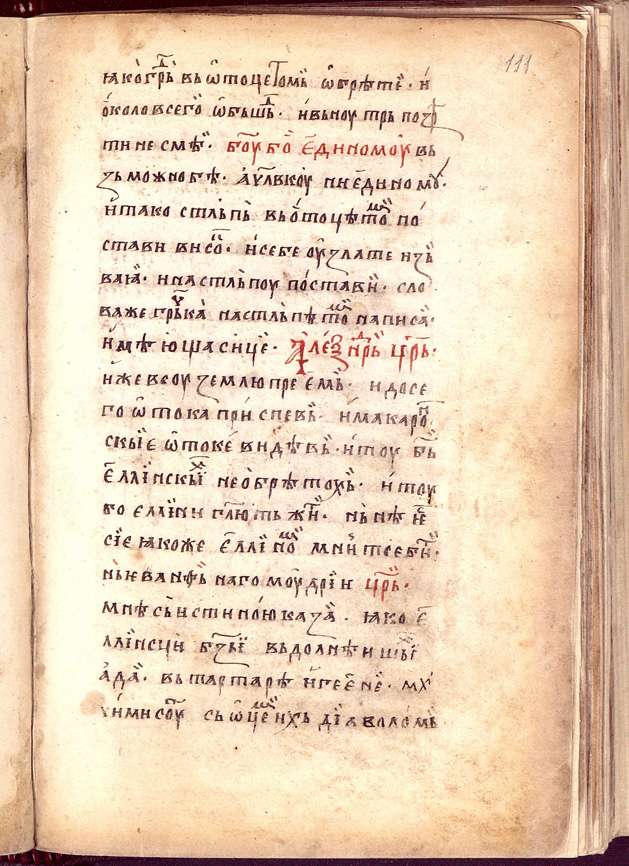 111
ꙗко гр҃ь въ ѡтоце томь ѡбрѣте· и
ѡколо всего ѡбьшⷣ· и вьноутрь по
ти не смѣ· бо҃у бо единомоу въ
зьможно бѣ· а҆ чл҃вкоу ни единомоу·
и тако стльпь въ ѡтоцѣ томⷤ по
стави висо· и себе оу злате изь
ваꙗ· и на стльпоу постави· сло
ва же грьⷱка на стльпѣ томⷤ написа·
имѣюща сице· Алеѯⷩⷣрь цр҃ь·
иже в`соу землю преемь· и до се
го ѡтока приспевь· и макарон
скые ѡтоке видѣвь· и тоу б҃ь
еллинскыⷯ не обрѣтохь· и тоу
бо еллини гл҃ють жи· нь нѣ
сїе ꙗкоже еллиноⷨ мнит се б҃ы·
нь иѵанть нагомоудрїи цр҃ь·
мнѣ сь истиною каза· ꙗко е
ллинсци б҃зы вь долнѣишыⷯ
ада· вь тартарѣ и геенѣ·
соуⷮ сь ѡцемь ихь дїаволомь